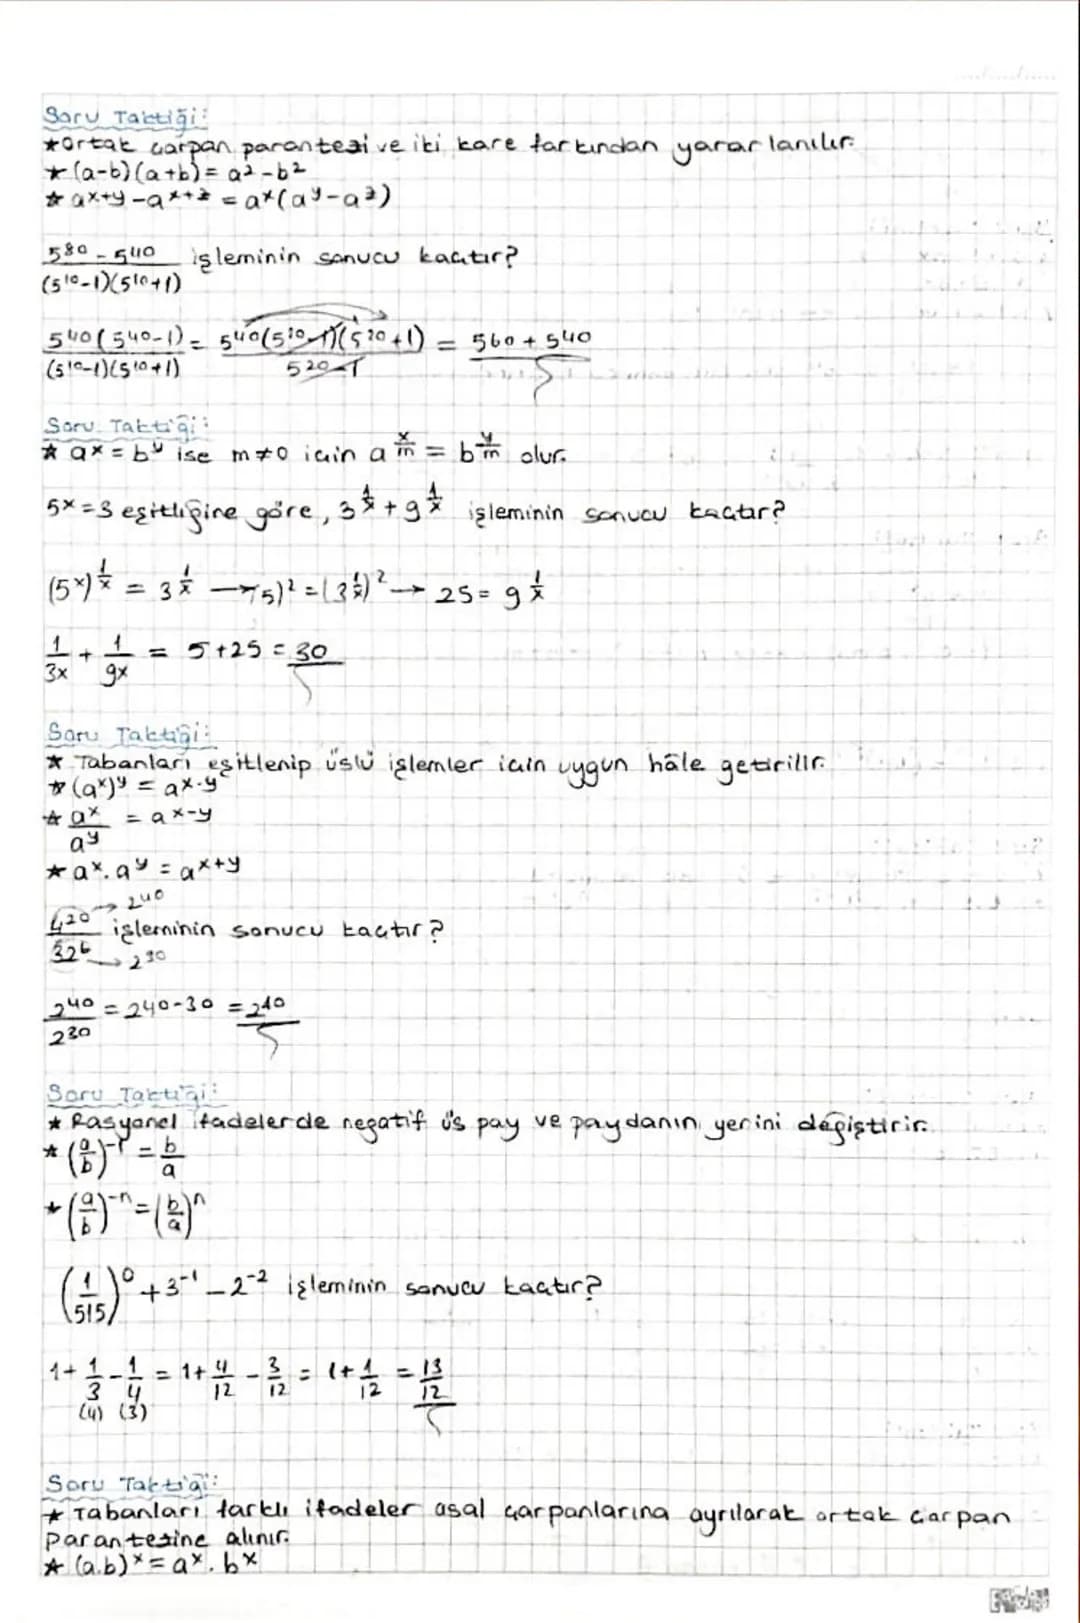 Soru Taktiği:
★Ortak çarpan parantezi ve iki kare farkından yararlanılır.
★ (a-b)(a+b) = a² - b²
★ aˣ⁺ʸ - aˣ⁺ᶻ = aˣ(aʸ - aᶻ)
5⁸⁰ - 5⁴⁰ / (5¹⁰-1)(5¹⁰+1) işleminin sonucu kaçtır?
5⁴⁰(5⁴⁰-1) / (5¹⁰-1)(5¹⁰+1) = 5⁴⁰(5²⁰-1)(5²⁰+1) / 5²⁰-1 = 5⁶⁰ + 5⁴⁰
Soru Taktiği:
★ aˣ = bʸ ise m≠0 için a^(x/m) = b^(y/m) olur.
5ˣ = 3 eşitliğine göre, 3^(1/x) + 9^(1/x) işleminin sonucu kaçtır?
(5ˣ)^(1/x) = 3^(1/x) → (5)² = (3^(1/x))² → 25 = 9^(1/x)
1/3x + 1/9x = 5+25 = 30
Soru Taktiği:
★ Tabanları eşitlenip üslü işlemler için uygun hâle getirilir.
★ (aˣ)ʸ = a^(x.y)
★ aˣ / aʸ = aˣ⁻ʸ
★ aˣ. aʸ = aˣ⁺ʸ
4²⁰ → 2⁴⁰ / 32⁶ → 2³⁰ işleminin sonucu kaçtır?
2⁴⁰ / 2³⁰ = 2⁴⁰⁻³⁰ = 2¹⁰
Soru Taktiği:
★ Rasyonel ifadelerde negatif üs pay ve paydanın yerini değiştirir.
★ (a/b)⁻¹ = b/a
★ (a/b)⁻ⁿ = (b/a)ⁿ
(1/515)⁰ + 3⁻¹ - 2⁻² işleminin sonucu kaçtır?
1 + 1/3 - 1/4 = 1 + 4/12 - 3/12 = 1 + 1/12 = 13/12
(4) (3)
Soru Taktiği:
★ Tabanları farklı ifadeler asal çarpanlarına ayrılarak ortak çarpan
parantezine alınır.
★ (a.b)ˣ = aˣ. bˣ